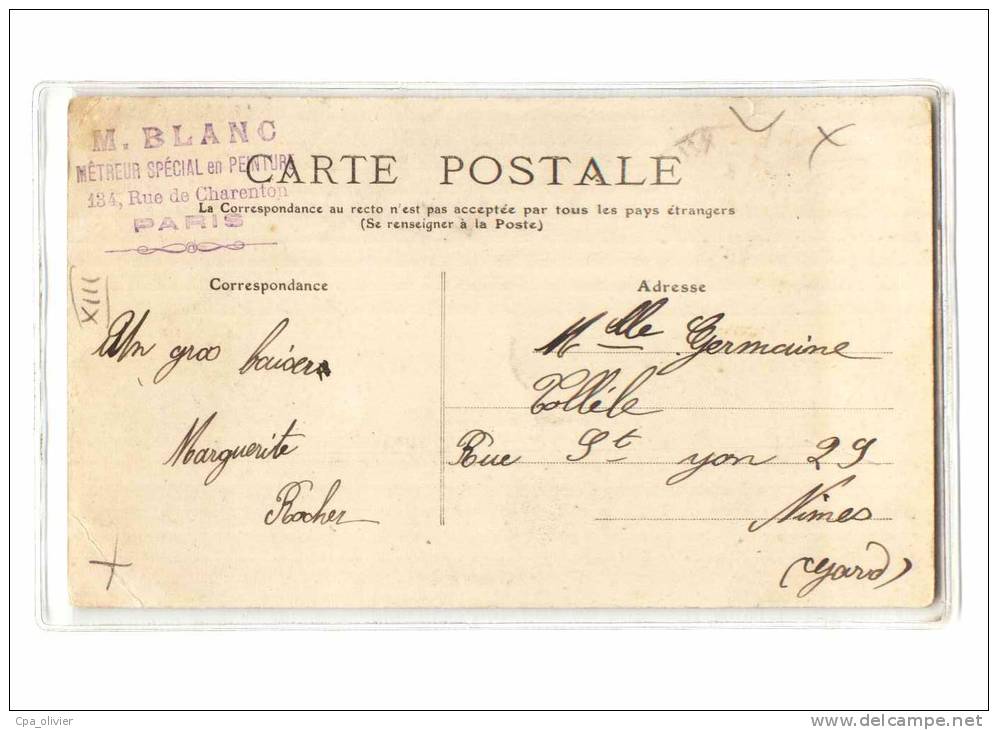 M. BLANC
MÉTREUR SPÉCIAL en PEINTURE
134, Rue de Charenton
PARIS
CARTE POSTALE
La Correspondance au recto n'est pas acceptée par tous les pays étrangers
(Se renseigner à la Poste)
XIII
Correspondance
Un gros baiser
Marguerite
Rocher
Adresse
Mlle Germaine
Rue St yon 29
Nimes
(Gard)
Cpa_olivier
www.delcampe.net